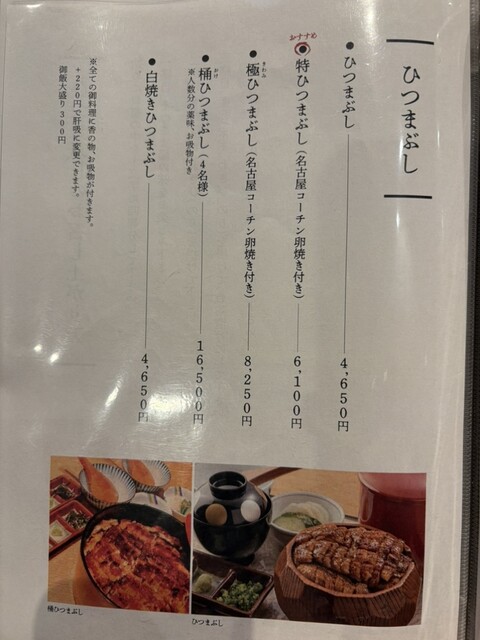 ひつまぶし
●ひつまぶし 4,650円
おすすめ
特ひつまぶし(名古屋コーチン卵焼き付き) 6,100円
●極ひつまぶし(名古屋コーチン卵焼き付き) 8,250円
きわみ
●桶ひつまぶし(4名様) 16,500円
おけ
※人数分の薬味、お吸物付き
●白焼きひつまぶし 4,650円
※全ての御料理に香の物、お吸物が付きます。
+220円で肝吸に変更できます。
御飯大盛り300円
桶ひつまぶし
ひつまぶし